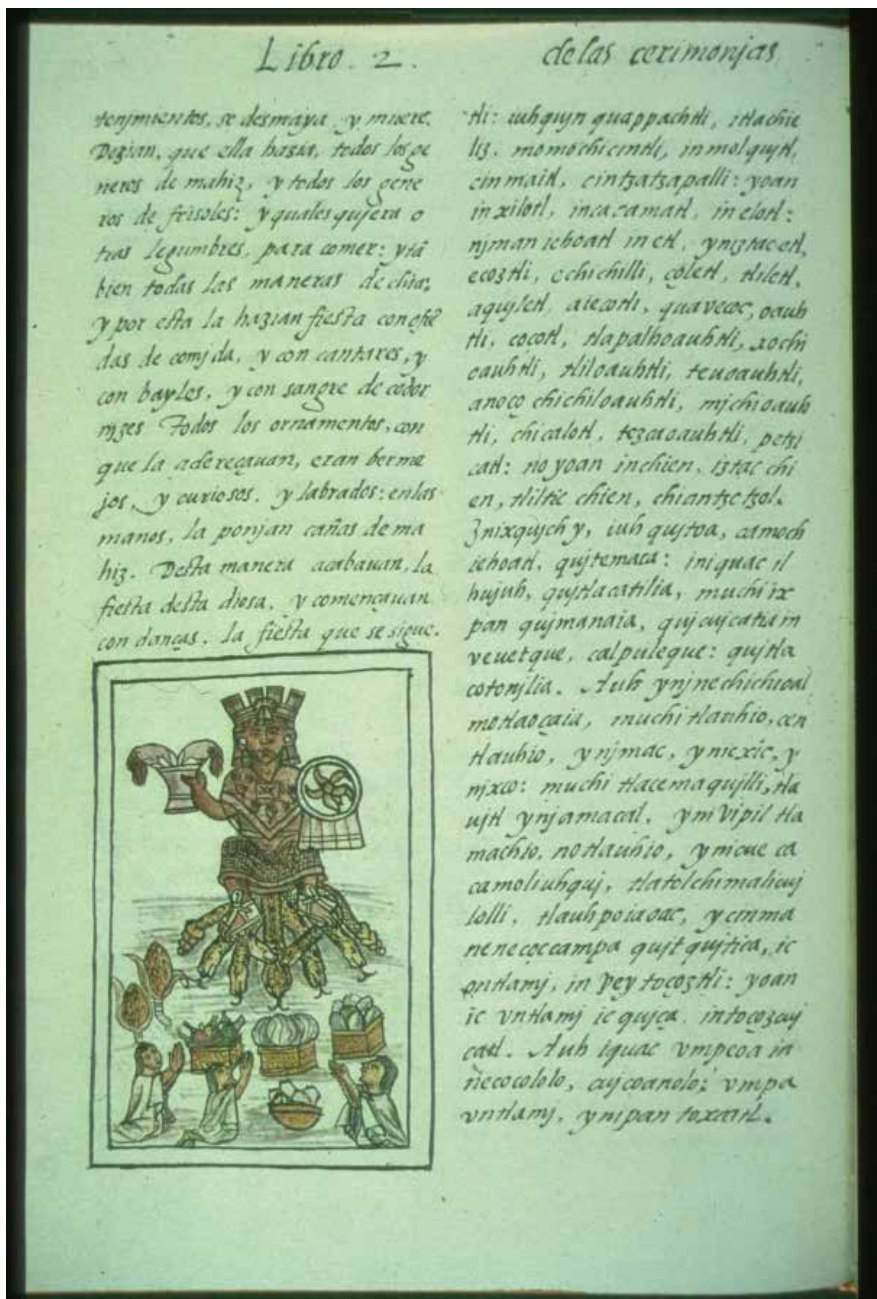 Libro. 2. de las cerimonjas
tenjmientos, se desmaya y muere.
Dezian, que ella hazia, todos los ge
neros de mahiz, y todos los gene
ros de frisoles: y quales qujera o
tras legumbres, para comer: y tã
bien todas las maneras de chia:
y por esto la hazian fiesta con ofrẽ
das de comjda, y con cantares, y
con bayles, y con sangre de codor
njzes Todos los ornamentos, con
que la adereçauan, eran berme
jos, y curiosos, y labrados: en las
manos, la ponjan cañas de ma
hiz. Desta manera acabauan, la
fiesta desta diosa, y començauan
con danças. la fiesta que se sigue.
tli: iuhqujn quappachtli, itlachie
liz. momochicintli, in molqujtl,
cinmaitl, cintzatzapalli: yoan
in xilotl, in cacamatl, in elotl:
njman iehoatl in etl, yn iztac etl,
ecoztli, echichilli, çoletl, tliletl,
aqujletl, aiecotli, quavecoc, oauh
tli, cocotl, tlapalhoauhtli, xochi
oauhtli, tliloauhtli, teuoauhtli,
anoço chichiloauhtli, mjchioauh
tli, chicalotl, tezcaoauhtli, petzi
catl: no yoan in chien, iztac chi
en, tliltic chien, chiantzotzol.
Inixqujch y, iuh qujtoa, ca moch
iehoatl, qujtemaca: in iquac il
hujuh, qujtlacatilia, muchi ix
pan qujmanaia, qujcujcatia in
veuetque, calpuleque: qujtla
cotonjlia. Auh yn jnechichioal
motlaoçaia, muchi tlauhio, cen
tlauhio, yn jmac, yn icxic, y
njxco: muchi tlacemaqujlli, tla
ujtl yn jamacal, ym vipil tla
machio, no tlauhio, yn icue ca
camoliuhquj, tlatolchimalicuj
lolli, tlauhpoiaoac, y cinma
nenecoccampa qujtqujtica, ic
ontlamj, in vey toçoztli: yoan
ic vntlamj ic qujça in toçozcuj
catl. Auh iquac vmpeoa in
necocololo, cujcoanolo: vmpa
vntlamj, yn ipan toxcatl.